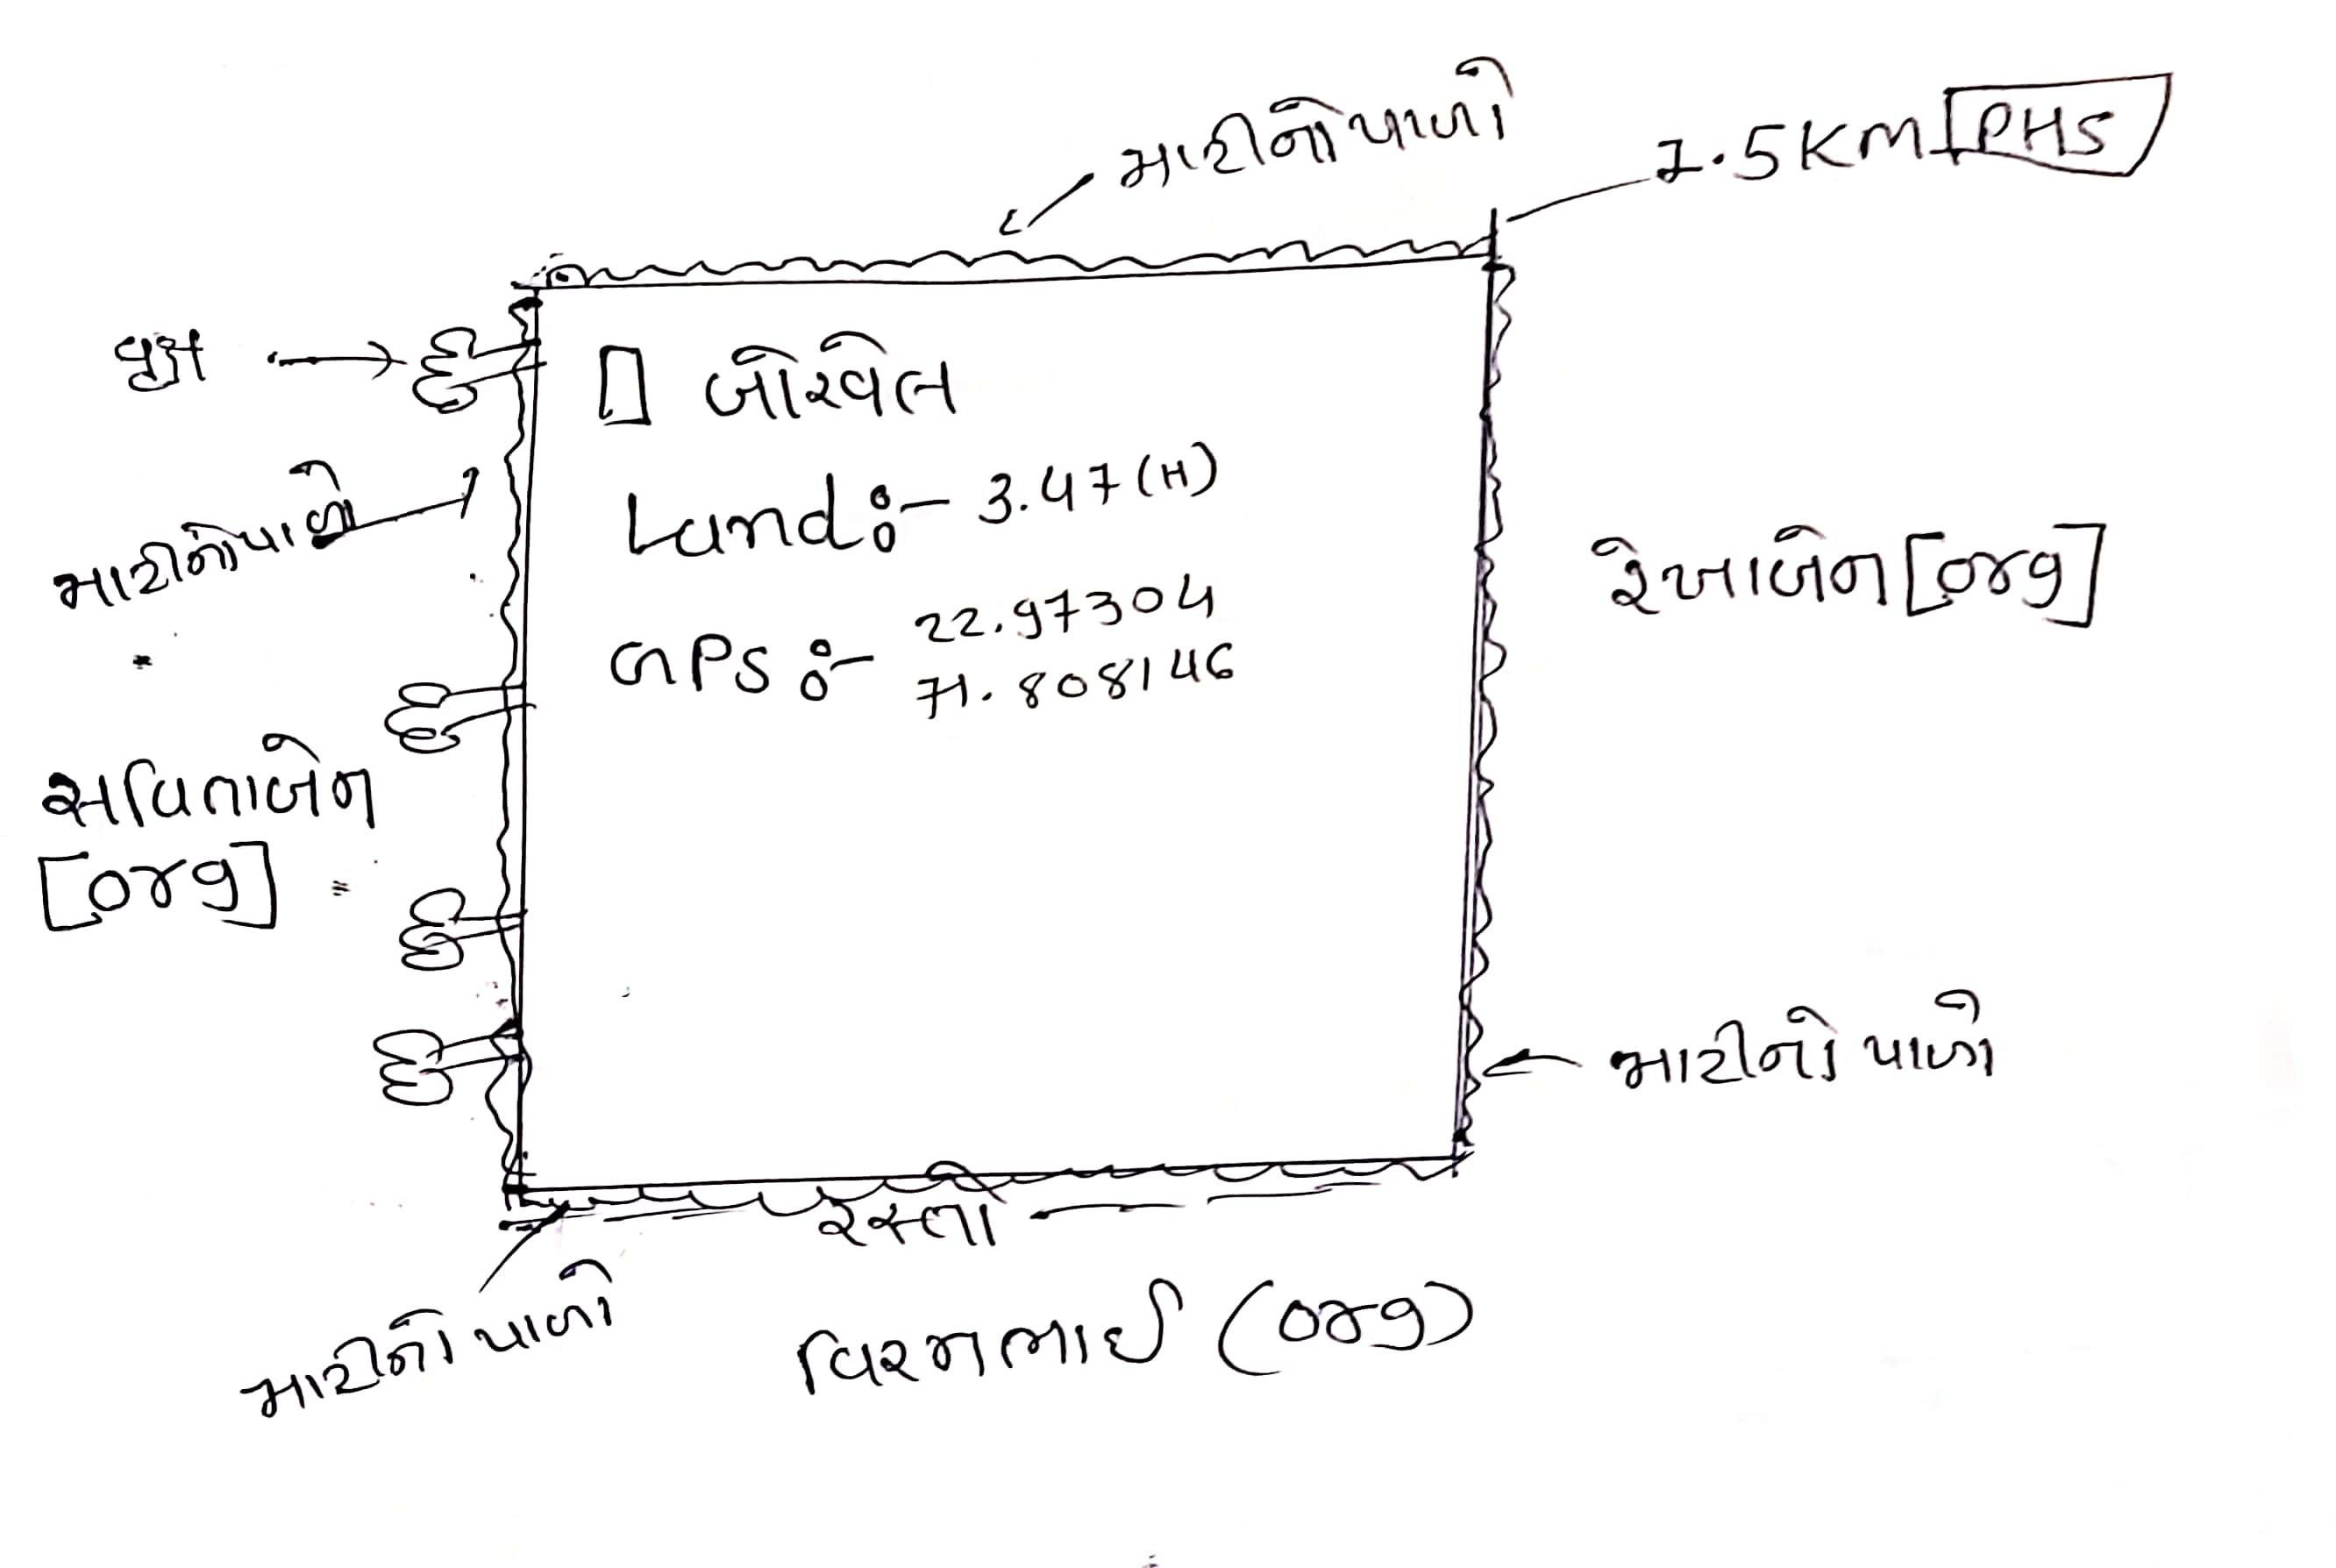 માટીનો પાળો
1.5KM PHS
વૃક્ષ
બોરવેલ
માટીનો પાળો
Land:- 3.47 (H)
GPS:- 22.97304
71.808146
રેખાબેન [org]
સવિતાબેન
[org]
માટીનો પાળો
રસ્તો
માટીનો પાળો
વિરમભાઈ (org)